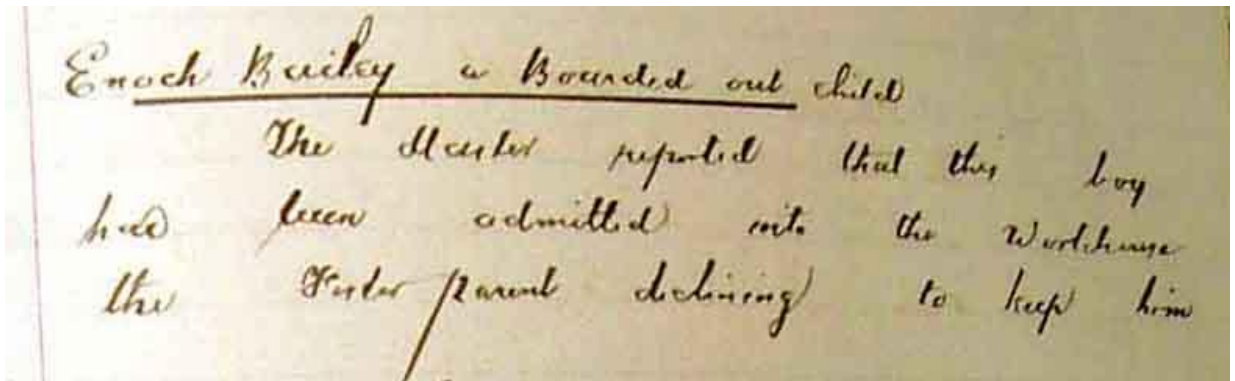 Enoch Bailey a Boarded out child
The Master reported that this boy
had been admitted into the Workhouse
the Foster parent declining to keep him